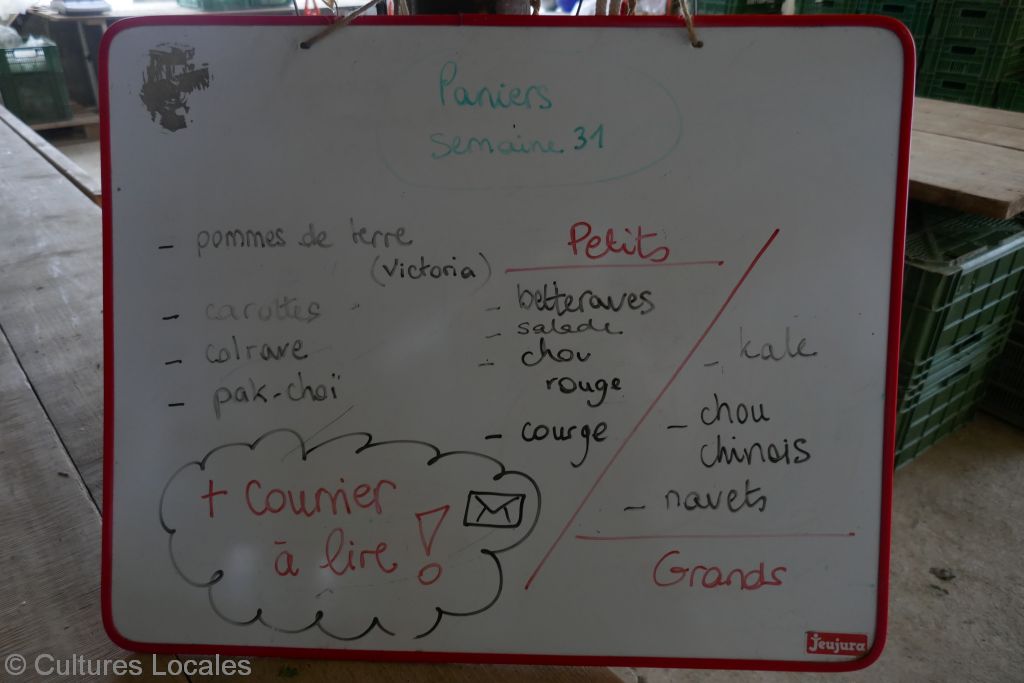 Paniers
semaine 31
- pommes de terre
(Victoria)
- carottes
- colrave
- pak-choï
Petits
- betteraves
- salade
- chou
rouge
- courge
- kale
- chou
chinois
- navets
Grands
+ Courrier
à lire !
Jeujura
© Cultures Locales